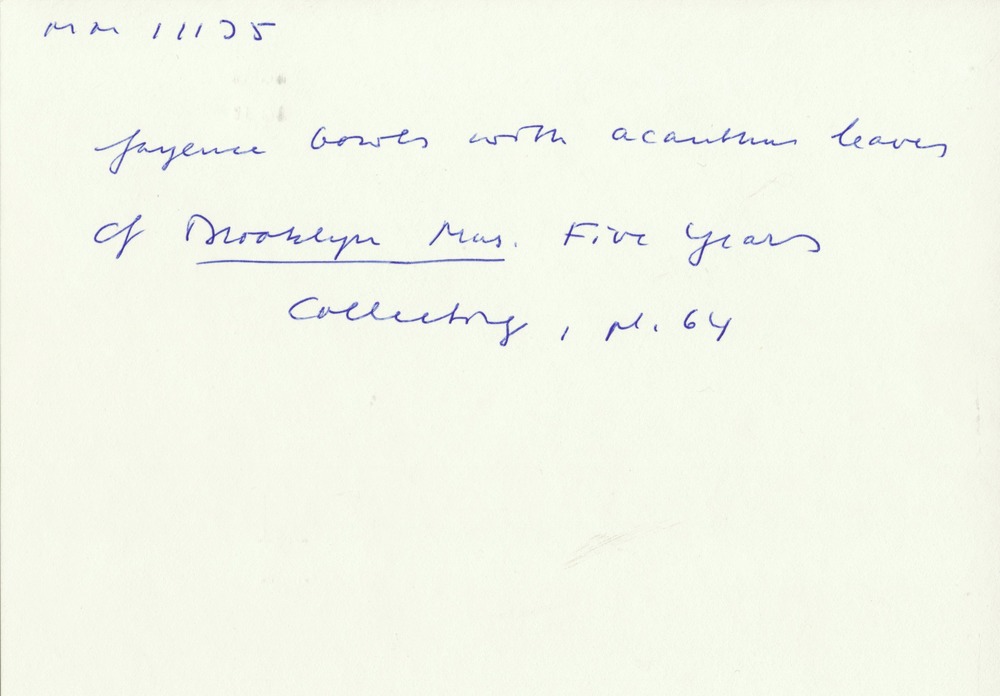 MM 11135
fayence bowls with acanthus leaves
cf Brooklyn Mus. Five Years
Collecting, pl. 64